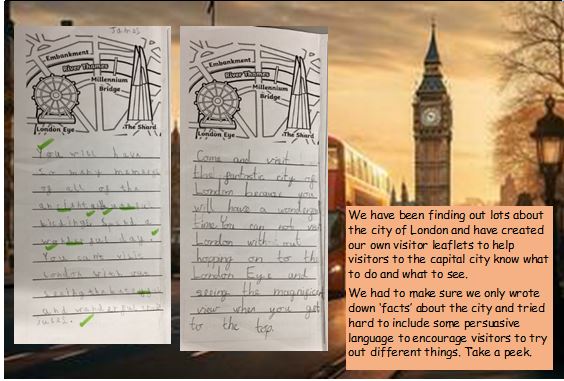 James
Embankment
River Thames
Millennium
Bridge
London Eye
The Shard
You will have
so many memories
of all of the
Spend a
day.
You can't visit
London with out
seeing the
and wonderful
Embankment
River Thames
Millennium
Bridge
London Eye
The Shard
Come and visit
the fantastic city of
London because you
will have a wonderful
time. You can not visit
London with out
hopping on to the
London Eye and
seeing the magnificent
view when you get
to the top.
We have been finding out lots about
the city of London and have created
our own visitor leaflets to help
visitors to the capital city know what
to do and what to see.
We had to make sure we only wrote
down 'facts' about the city and tried
hard to include some persuasive
language to encourage visitors to try
out different things. Take a peek.